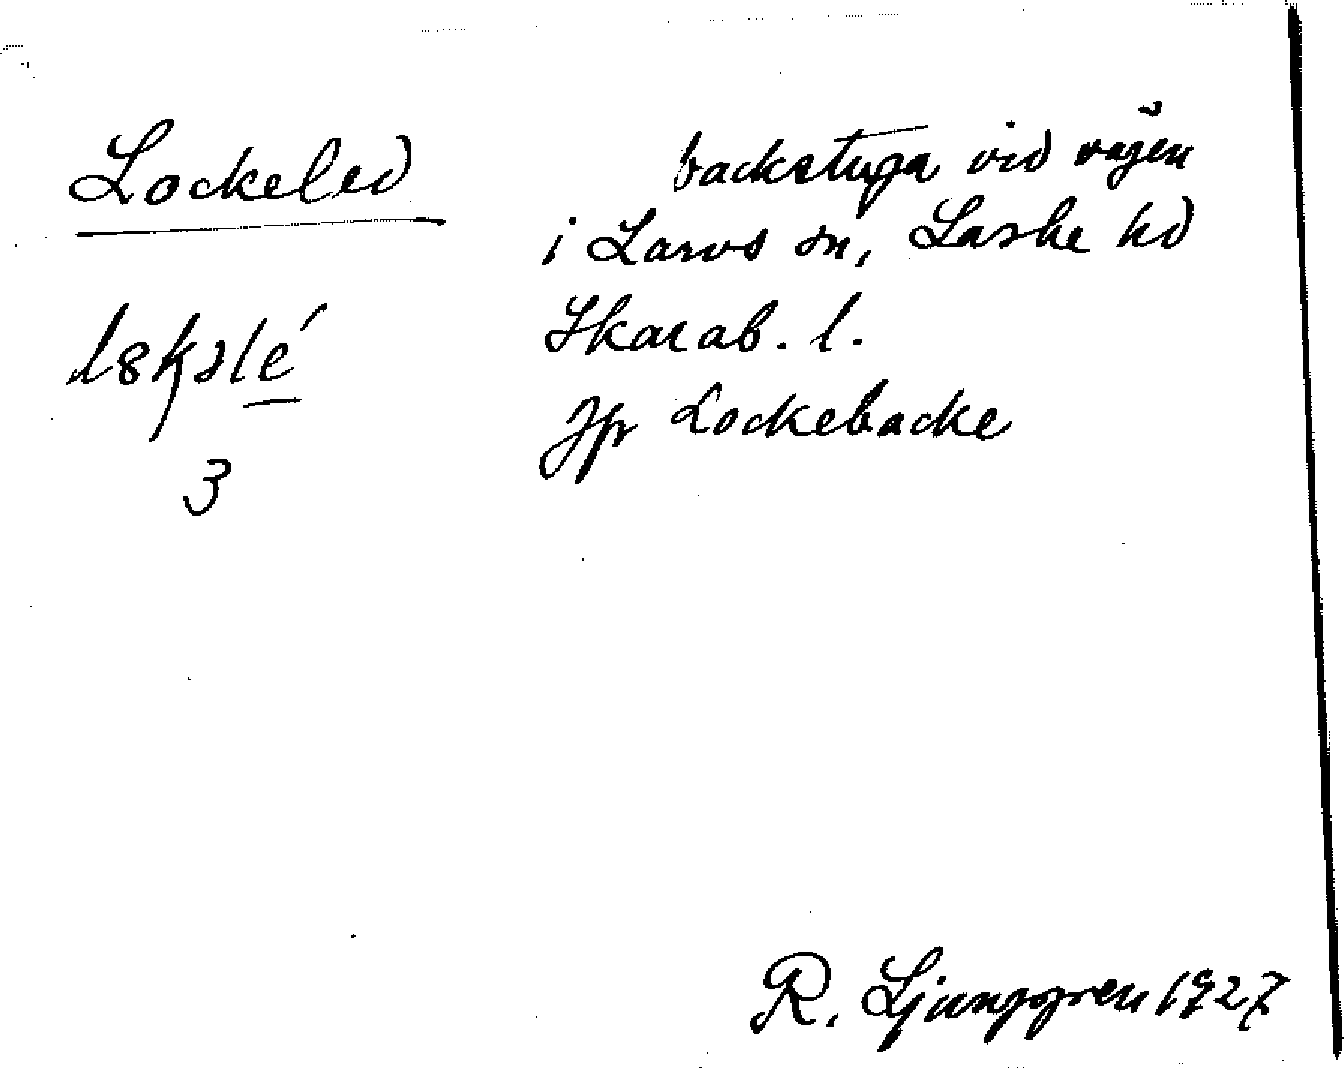 Lockeled
backstuga vid vägen
i Larvs sn, Laske hd
Skarab. l.
Jfr Lockebacke
3
R. Ljunggren 1927